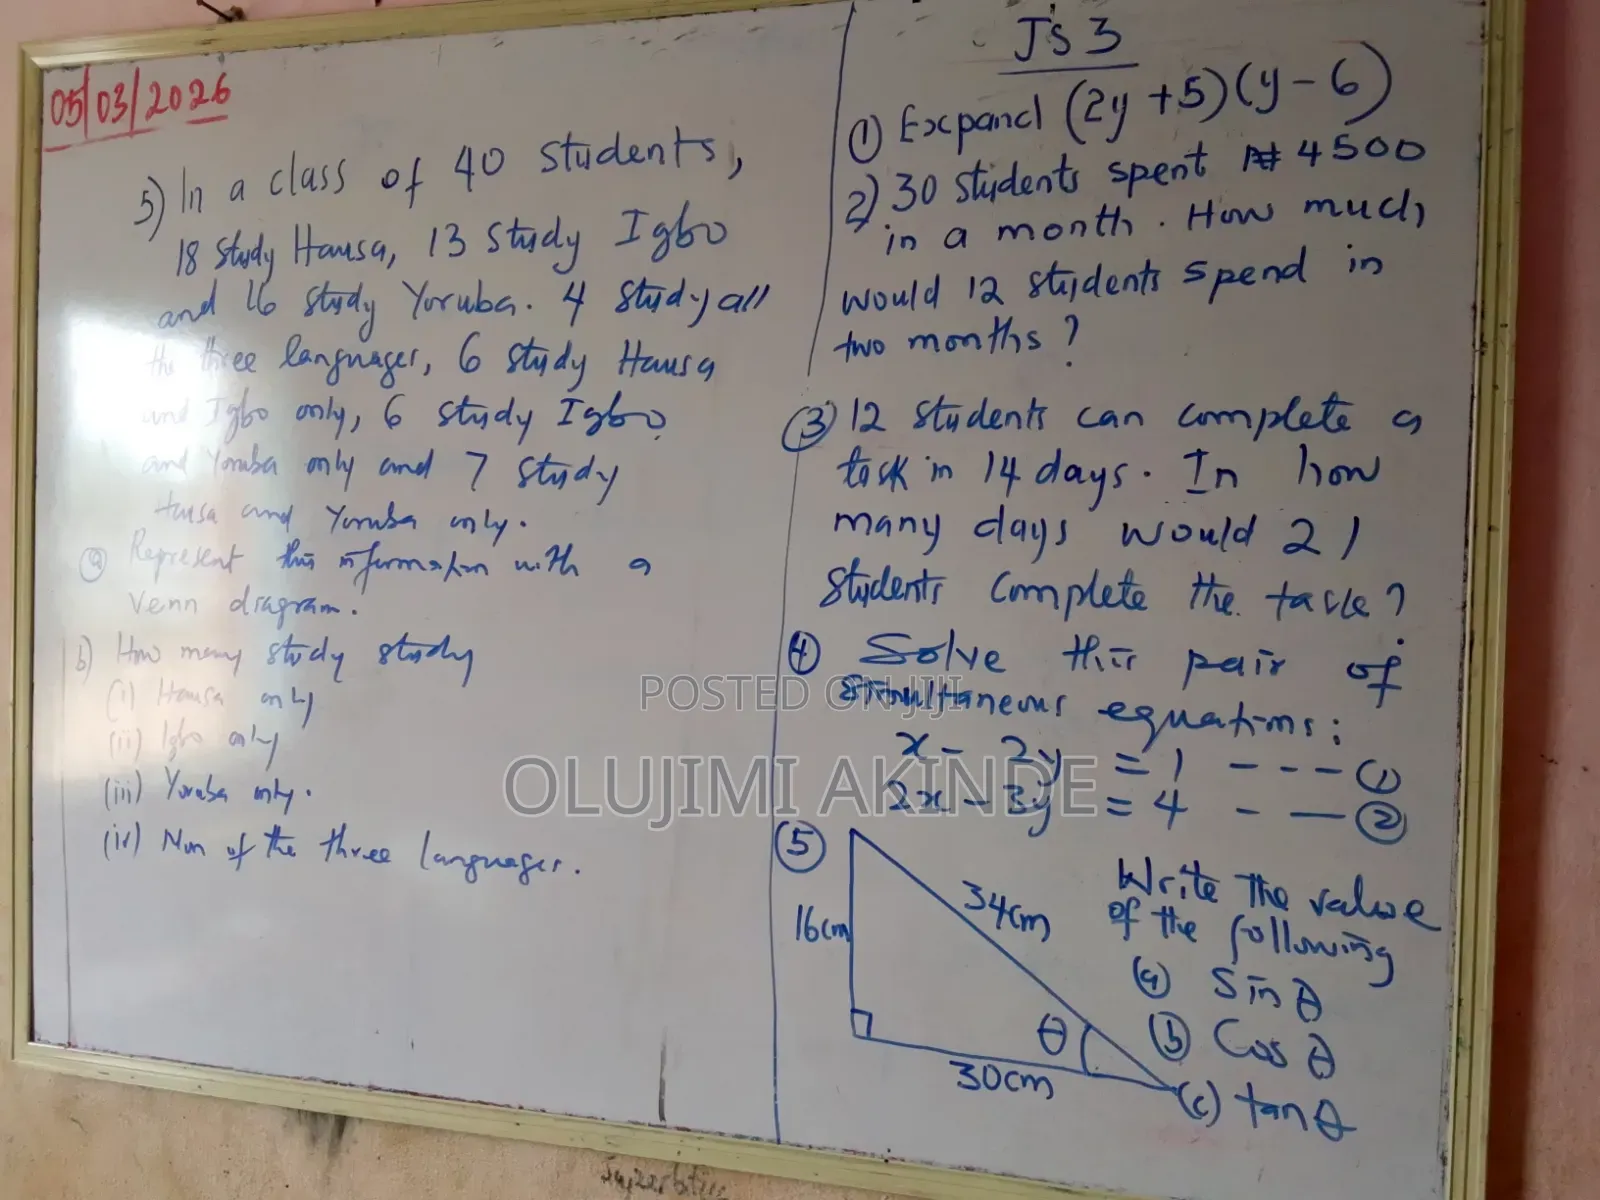 05/03/2026
5) In a class of 40 students,
18 study Hausa, 13 study Igbo
and 16 study Yoruba. 4 study all
the three languages, 6 study Hausa
and Igbo only, 6 study Igbo
and Yoruba only and 7 study
Hausa and Yoruba only.
(a) Represent this information with a
venn diagram.
b) How many study study
(i) Hausa only
(ii) Igbo only
(iii) Yoruba only.
(iv) Non of the three languages.
JS 3
(1) Expand (2y + 5)(y - 6)
2) 30 students spent ₦ 4500
in a month. How much
would 12 students spend in
two months?
(3) 12 students can complete a
task in 14 days. In how
many days would 21
students complete the task?
(4) Solve this pair of
simultaneous equations:
x - 2y = 1 - - - (1)
2x - 3y = 4 - - (2)
(5)
16cm
34cm
θ
30cm
Write the value
of the following
(a) Sin θ
(b) Cos θ
(c) tan θ
POSTED ON JIJI
OLUJIMI AKINDE